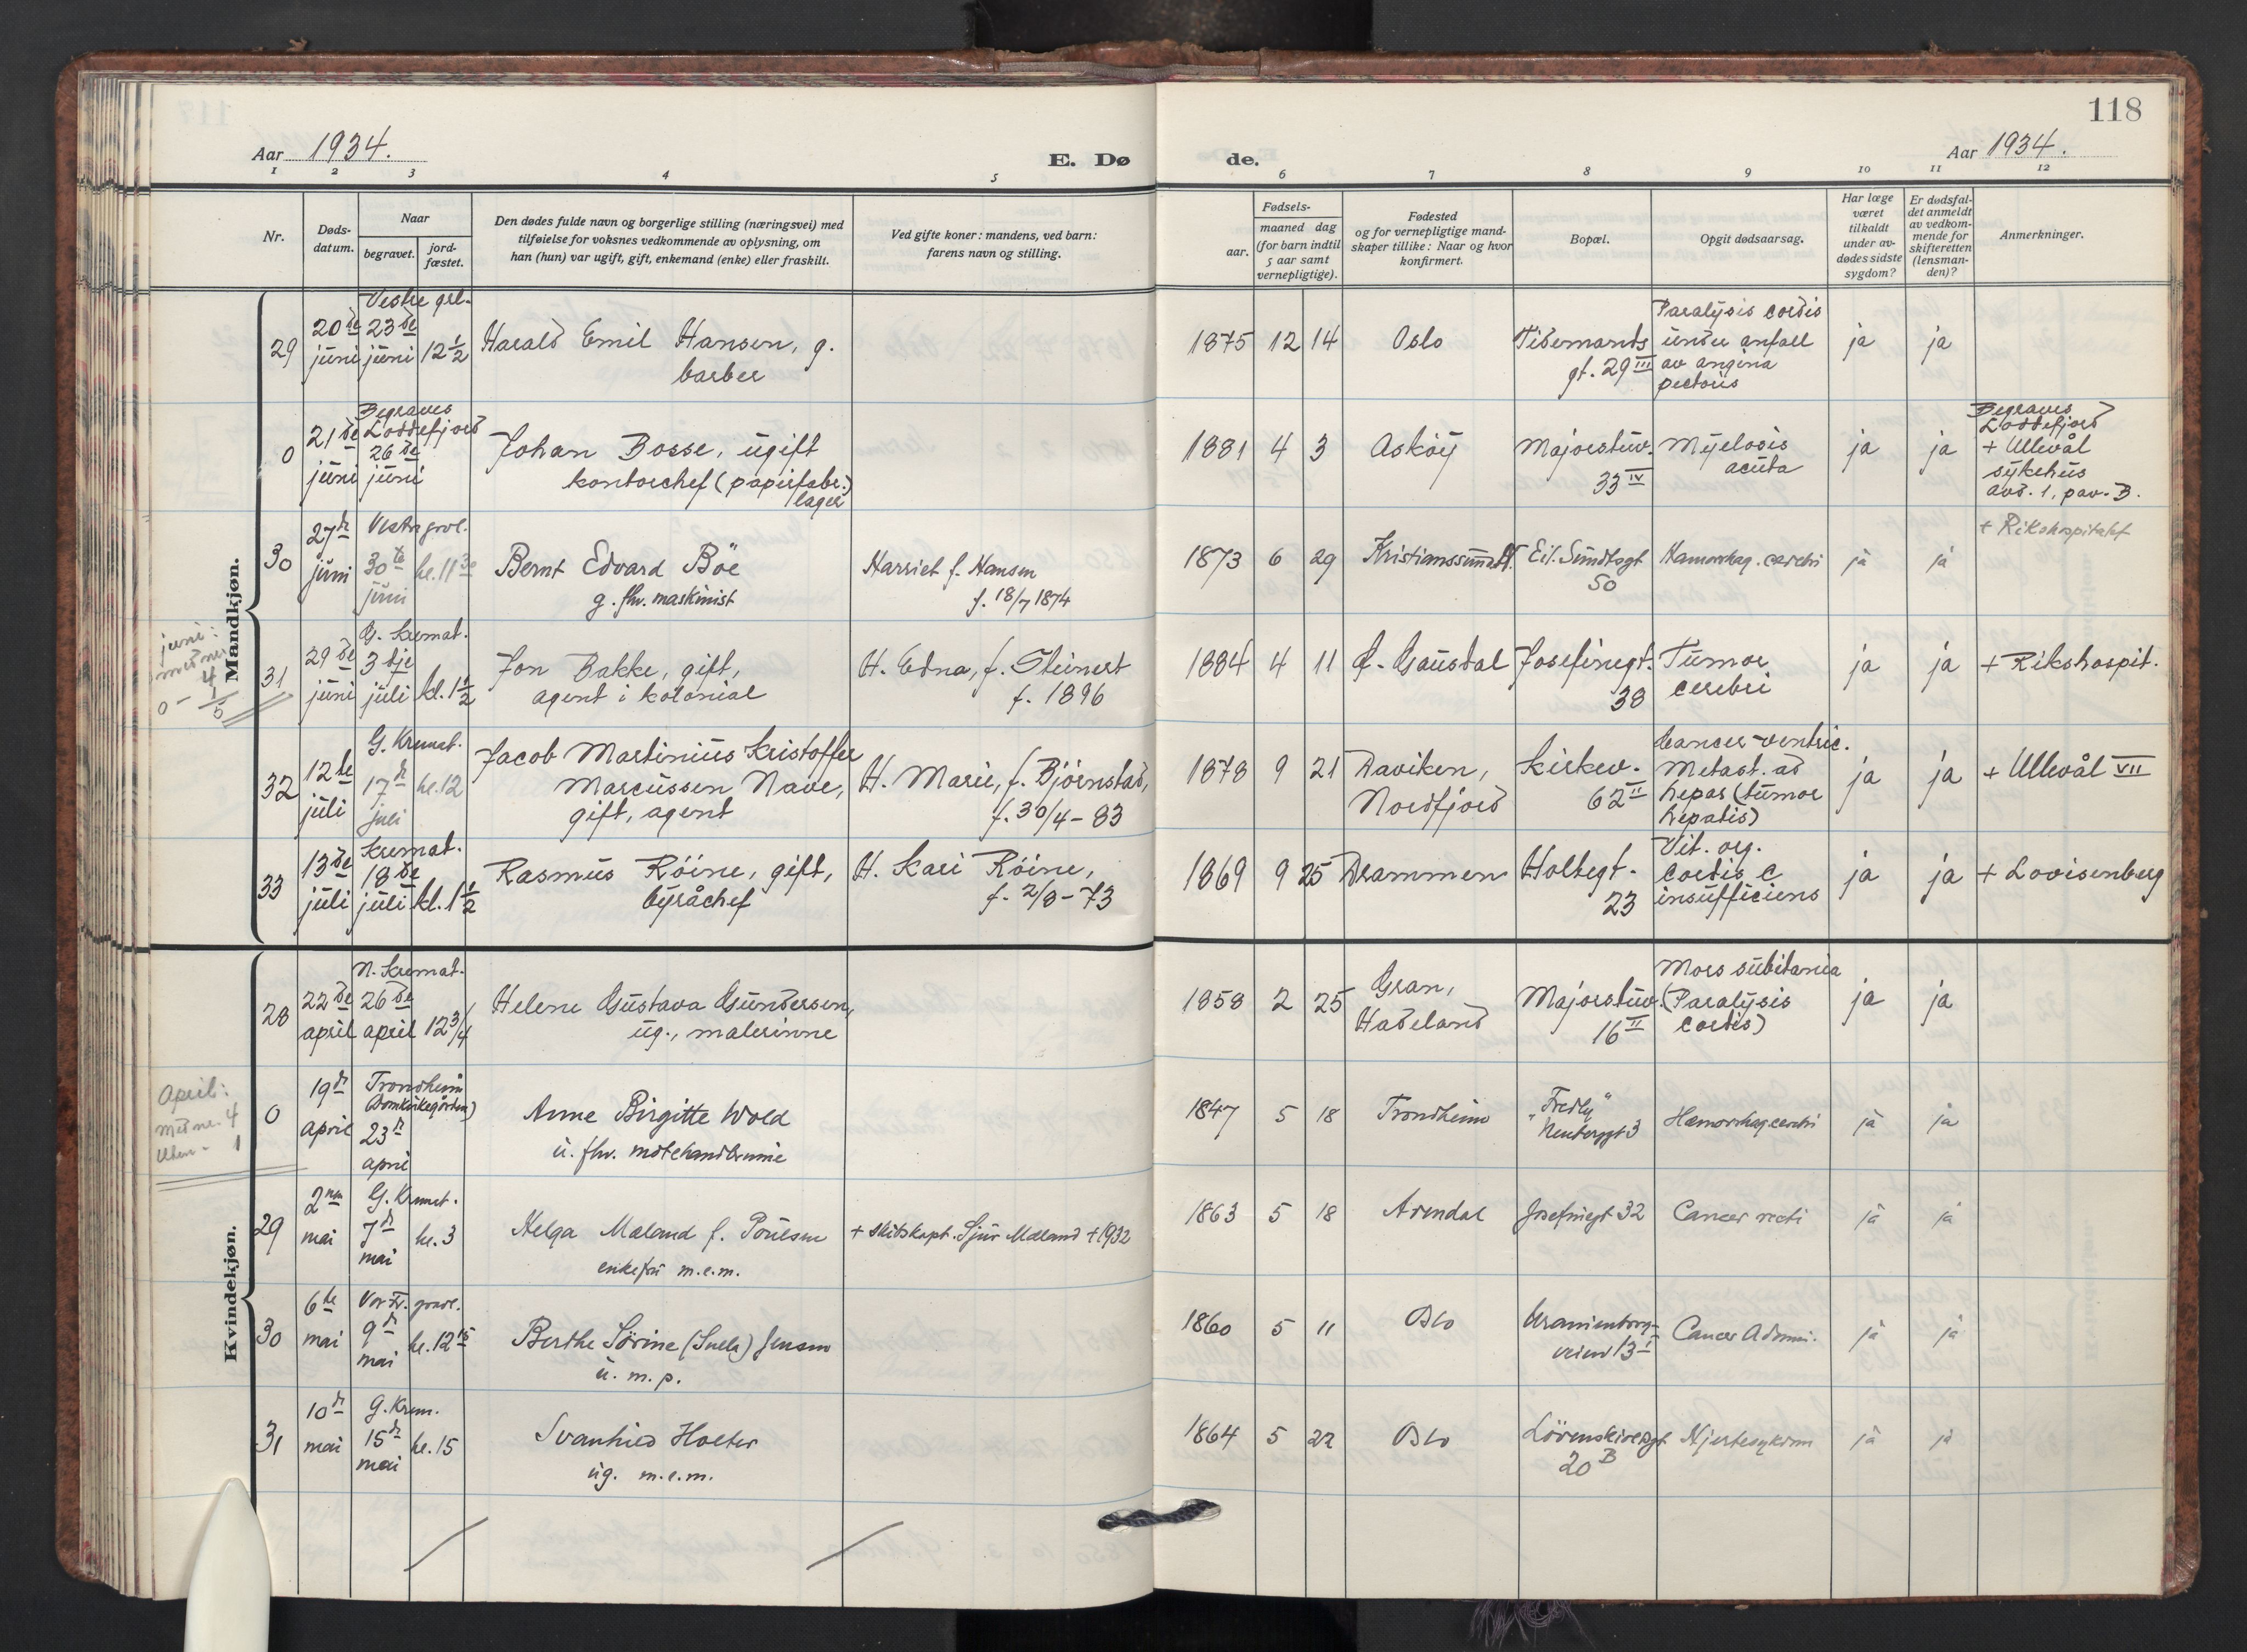 118
Aar 1934.
E. Dø
de.
Aar 1934.
1 2 3 4 5 6 7 8 9 10 11 12
Nr.
Døds-
datum.
Naar
begravet.
jord-
fæstet.
Den dødes fulde navn og borgerlige stilling (næringsvei) med
tilføielse for voksnes vedkommende av oplysning, om
han (hun) var ugift, gift, enkemand (enke) eller fraskilt.
Ved gifte koner: mandens, ved barn:
farens navn og stilling.
Fødsels-
aar.
maaned dag
(for barn indtil
5 aar samt
vernepligtige).
Fødested
og for vernepligtige mand-
skaper tillike: Naar og hvor
konfirmert.
Bopæl.
Opgit dødsaarsag.
Har læge
været
tilkaldt
under av-
dødes sidste
sygdom?
Er dødsfal-
det anmeldt
av vedkom-
mende for
skifteretten
(lensman-
den)?
Anmerkninger.
Mandkjøn.
29
20de
juni
Vestre grl.
23de
juni
12½
Harald Emil Hansen, g.
barber
1875 12 14
Oslo
Tidemands
gt. 29 III
Paralysis cordis
under anfall
av angina
pectoris
ja
ja
0
21de
juni
Begraves
Loddefjord
26de
juni
Johan Bosse, ugift
kontorchef (papirfabr.)
lager
1881 4 3
Askøy
Majorstuv.
33 IV
Myelosis
acuta
ja
ja
Begraves
Loddefjord
+ Ullevål
sykehus
avd. 1, pav. B.
30
27de
juni
Vestre gravl.
30te
juni
kl. 11 30
Bernt Edvard Böe
g. fhv. maskinist
Harriet f. Hansen
f. 18/7 1874
1873 6 29
Kristianssund N.
Eil. Sundtsgt
50
Hæmorrhag. cerebri
ja
ja
+ Rikshospitalet
juni:
med nr
4
0 - 1
5
31
29de
juni
G. Kremat.
3dje
juli
kl. 1½
Jon Bakke, gift,
agent i kolonial
H. Edna, f. Steinert
f. 1896
1884 4 11
Ø. Gausdal
Josefinegt.
38
Tumor
cerebri
ja
ja
+ Rikshospit.
32
12te
juli
G. Kremat.
17de
juli
kl. 12
Jacob Martinius Kristoffer
Marcussen Nave,
gift, agent
H. Marie, f. Bjørnstad,
f. 30/4 - 83
1878 9 21
Daviken,
Nordfjord
Kirkev.
62 II
Cancer ventric.
Metast. ad
hepar (tumor
hepatis)
ja
ja
+ Ullevål VII
33
13de
juli
Kremat.
18de
juli
kl. 1½
Rasmus Röine, gift,
byråchef
H. Kari Röine,
f. 2/8 - 73
1869 9 25
Drammen
Holtegt.
23
Vit. org.
cordis c
insufficiens
ja
ja
+ Lovisenberg
Kvindekjøn.
28
22de
april
N. Kremat.
26de
april
12 3/4
Helene Gustava Gundersen,
ug., malerinne
1858 2 25
Gran,
Hadeland
Majorstuv.
16 II
Mors subitania
(Paralysis
cordis)
ja
ja
April:
med nr. 4
Uten - 1
0
19de
april
Trondheim
(Domkirkegården)
23de
april
Anne Birgitte Wold
u. fhv. motehandlerinne
1847 5 18
Trondheim
"Fredly"
Neuberggt 3
Hæmorrhag cerebri
ja
ja
29
2nen
mai
G. Kremat.
7de
mai
kl. 3
Helga Maland f. Poulsen
enkefru m.e.m.
+ skibskapt. Sjur Maland + 1932
1863 5 18
Arendal
Josefinegt 32
Cancer recti
ja
ja
30
6te
mai
Vor Fr. gravl.
9de
mai
kl. 12 15
Berthe Sörine (Snella) Jensen
u. m. p.
1860 5 11
Oslo
Uranienborg-
veien 13 I
Cancer Abdomi.
ja
ja
31
10de
mai
G. Krem.
15de
mai
kl. 15
Svanhild Holter
ug. m.e.m.
1864 5 22
Oslo
Lövenskioldsgt
20 B
Hjertesykdom
ja
ja